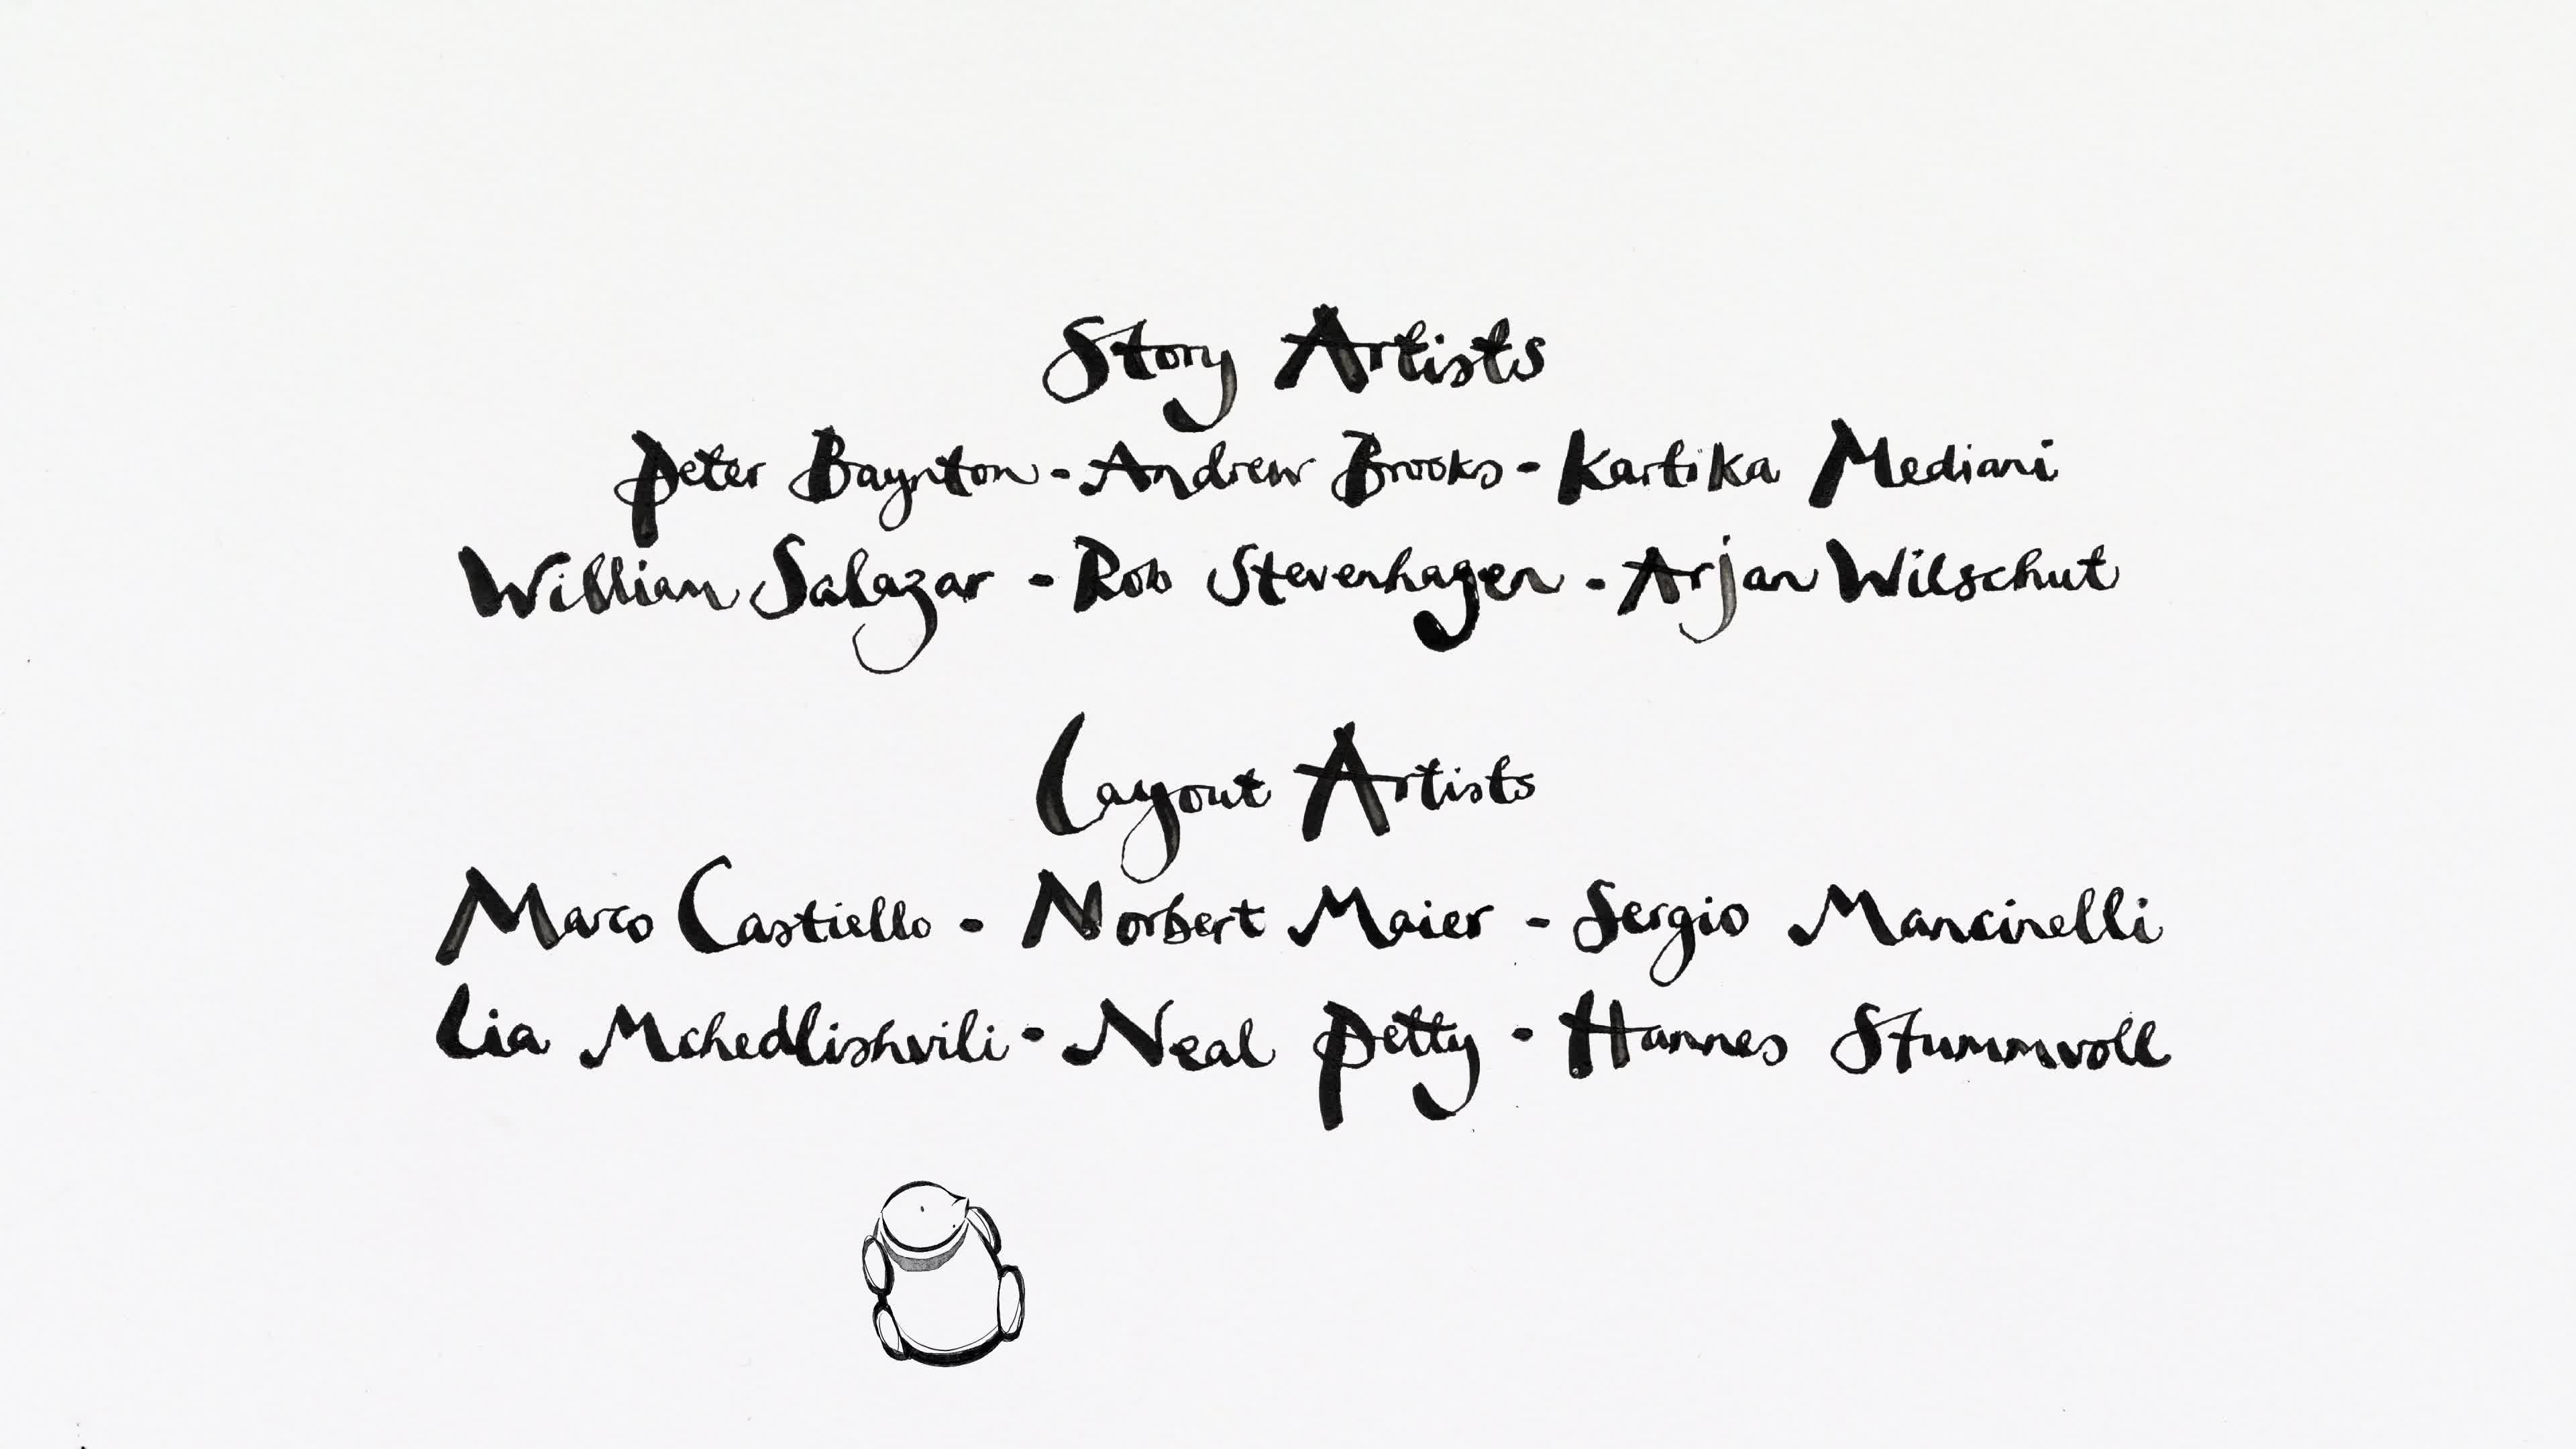 Story Artists
Peter Baynton - Andrew Brooks - Kartika Mediani
William Salazar - Rob Stevenhagen - Arjan Wilschut
Layout Artists
Marco Castiello - Norbert Maier - Sergio Mancinelli
Lia Mchedlishvili - Neal Petty - Hannes Stummvoll